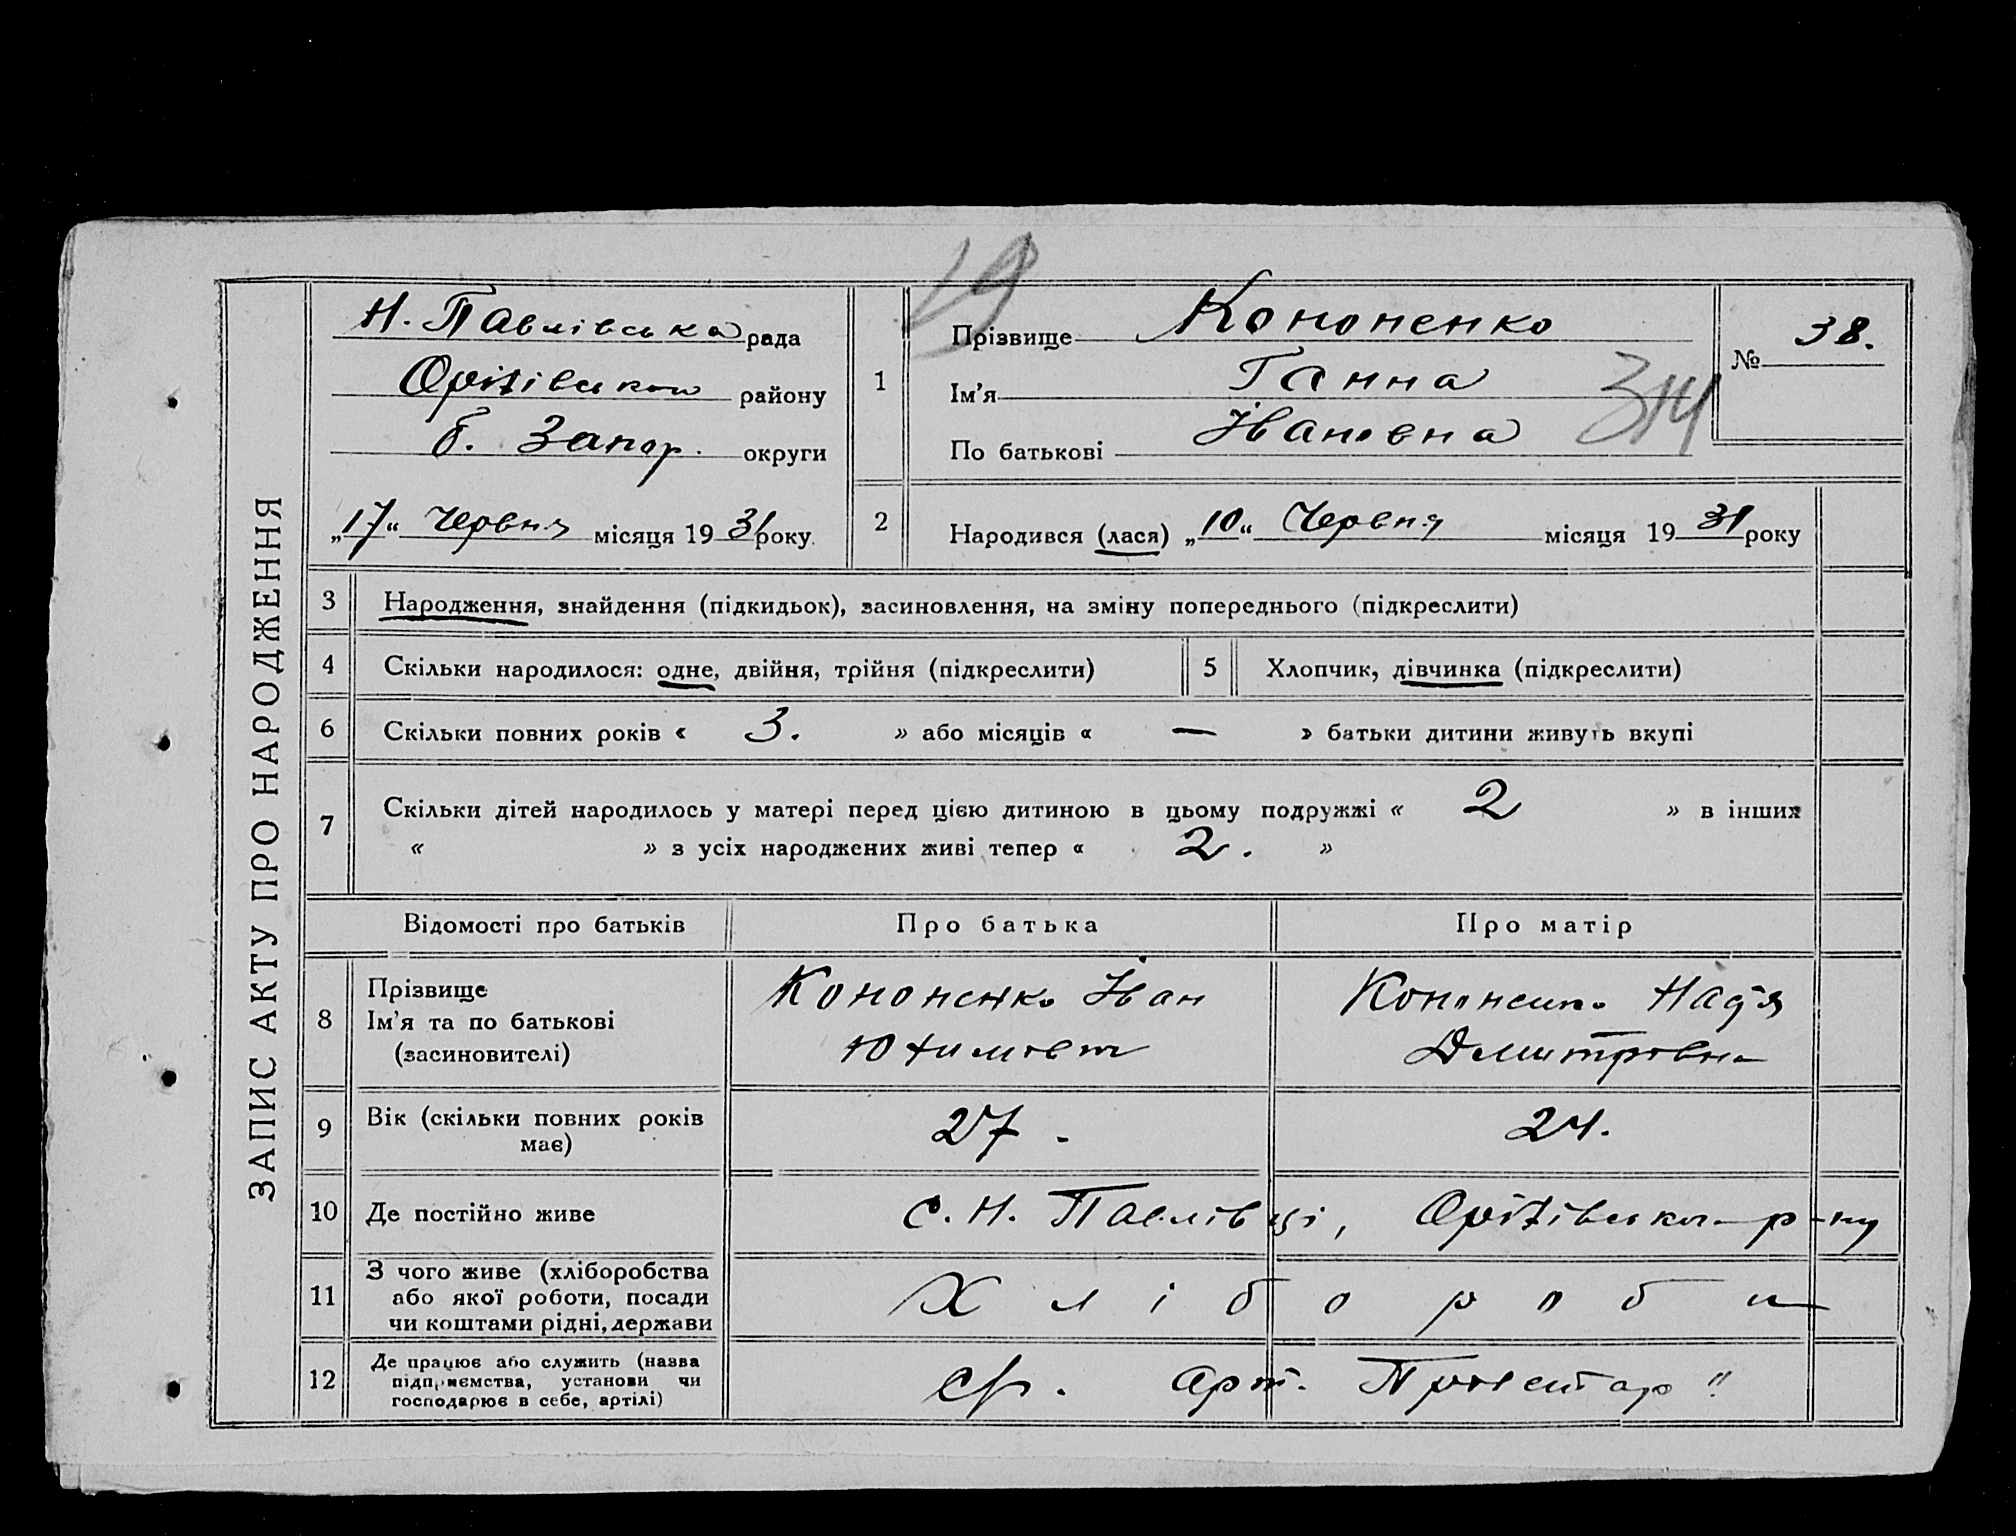 ЗАПИС АКТУ ПРО НАРОДЖЕННЯ
Н. Павлівська рада
Оріхівськом району
б. Запор. округи
„17“ Червня місяця 1931 року
19
1
Прізвище Кононенко
Ім'я Ганна
По батькові Івановна
№ 38.
314
2
Народився (лася) „10“ Червня місяця 1931 року
3 Народження, знайдення (підкидьок), засиновлення, на зміну попереднього (підкреслити)
4 Скільки народилося: одне, двійня, трійня (підкреслити)
5 Хлопчик, дівчинка (підкреслити)
6 Скільки повних років « 3. » або місяців « — » батьки дитини живуть вкупі
7 Скільки дітей народилось у матері перед цією дитиною в цьому подружжі « 2 » в інших
« » з усіх народжених живі тепер « 2. »
Відомості про батьків Про батька Про матір
8 Прізвище
Ім'я та по батькові
(засиновителі)
Кононенко Іван
Юхимович
Кононенко Надя
Дмитровна
9 Вік (скільки повних років
має)
27. 24.
10 Де постійно живе с. Н. Павлівці, Оріхівськ р-ну
11 З чого живе (хліборобства
або якої роботи, посади
чи коштами рідні, держави
Хлібороби
12 Де працює або служить (назва
підприємства, установи чи
господарює в себе, артілі)
арт. Пролетар"